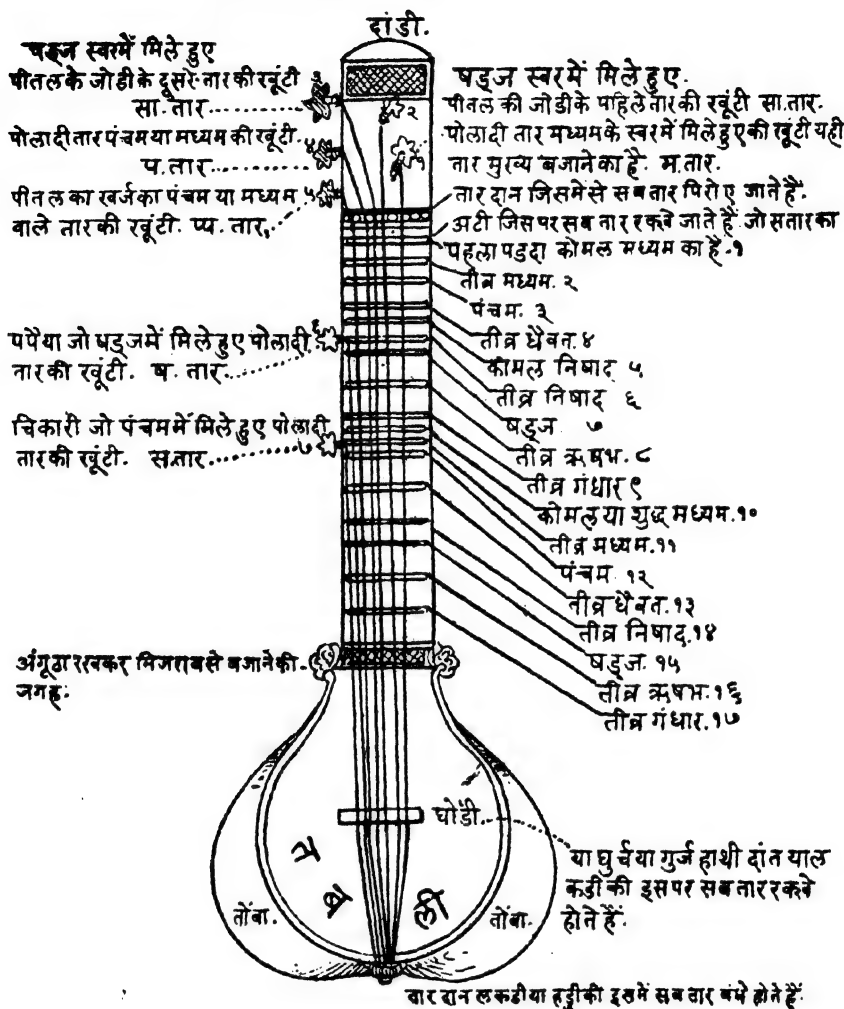 दांडी.
षड्ज स्वरमें मिले हुए
पीतलके जोडीके दूसरे तारकी खूंटी ३
सा.तार
पोलादी तार पंचम या मध्यम की खूंटी. ४
प.तार
पीतल का खर्जका पंचम या मध्यम ५
वाले तारकी खूंटी. प्प. तार.
पपैया जो षड्जमें मिले हुए पोलादी ६
तारकी खूंटी. ष. तार
चिकारी जो पंचममें मिले हुए पोलादी
तारकी खूंटी. स.तार ७
अंगूठा रखकर मिजराबसे बजानेकी
जगह.
२
१
षड्ज स्वरमें मिले हुए.
पीतल की जोडीके पहिले तारकी खूंटी सा.तार.
पोलादी तार मध्यमके स्वरमें मिले हुएकी खूंटी यही
तार मुख्य बजानेका है. म.तार.
तार दान जिसमेंसे सब तार पिरोए जाते हैं.
अटी जिसपर सब तार रक्खे जाते हैं जो सतारका
पहला पडुदा कोमल मध्यमका है. १
तीव्र मध्यम. २
पंचम. ३
तीव्र धैवत. ४
कोमल निषाद् ५
तीव्र निषाद् ६
षड्ज ७
तीव्र ऋषभ. ८
तीव्र गंधार ९
कोमल या शुद्ध मध्यम. १०
तीव्र मध्यम. ११
पंचम १२
तीव्र धैवत. १३
तीव्र निषाद्. १४
षड्ज. १५
तीव्र ऋषभ. १६
तीव्र गंधार. १७
घोडी.
या घुर्च या गुर्ज हाथी दांत या ल
कडीकी इसपर सब तार रक्खे
होते हैं.
त ब ली
तोंबा.
तोंबा.
तार दान लकडी या हड्डीकी इसमें सब तार बंधे होते हैं.